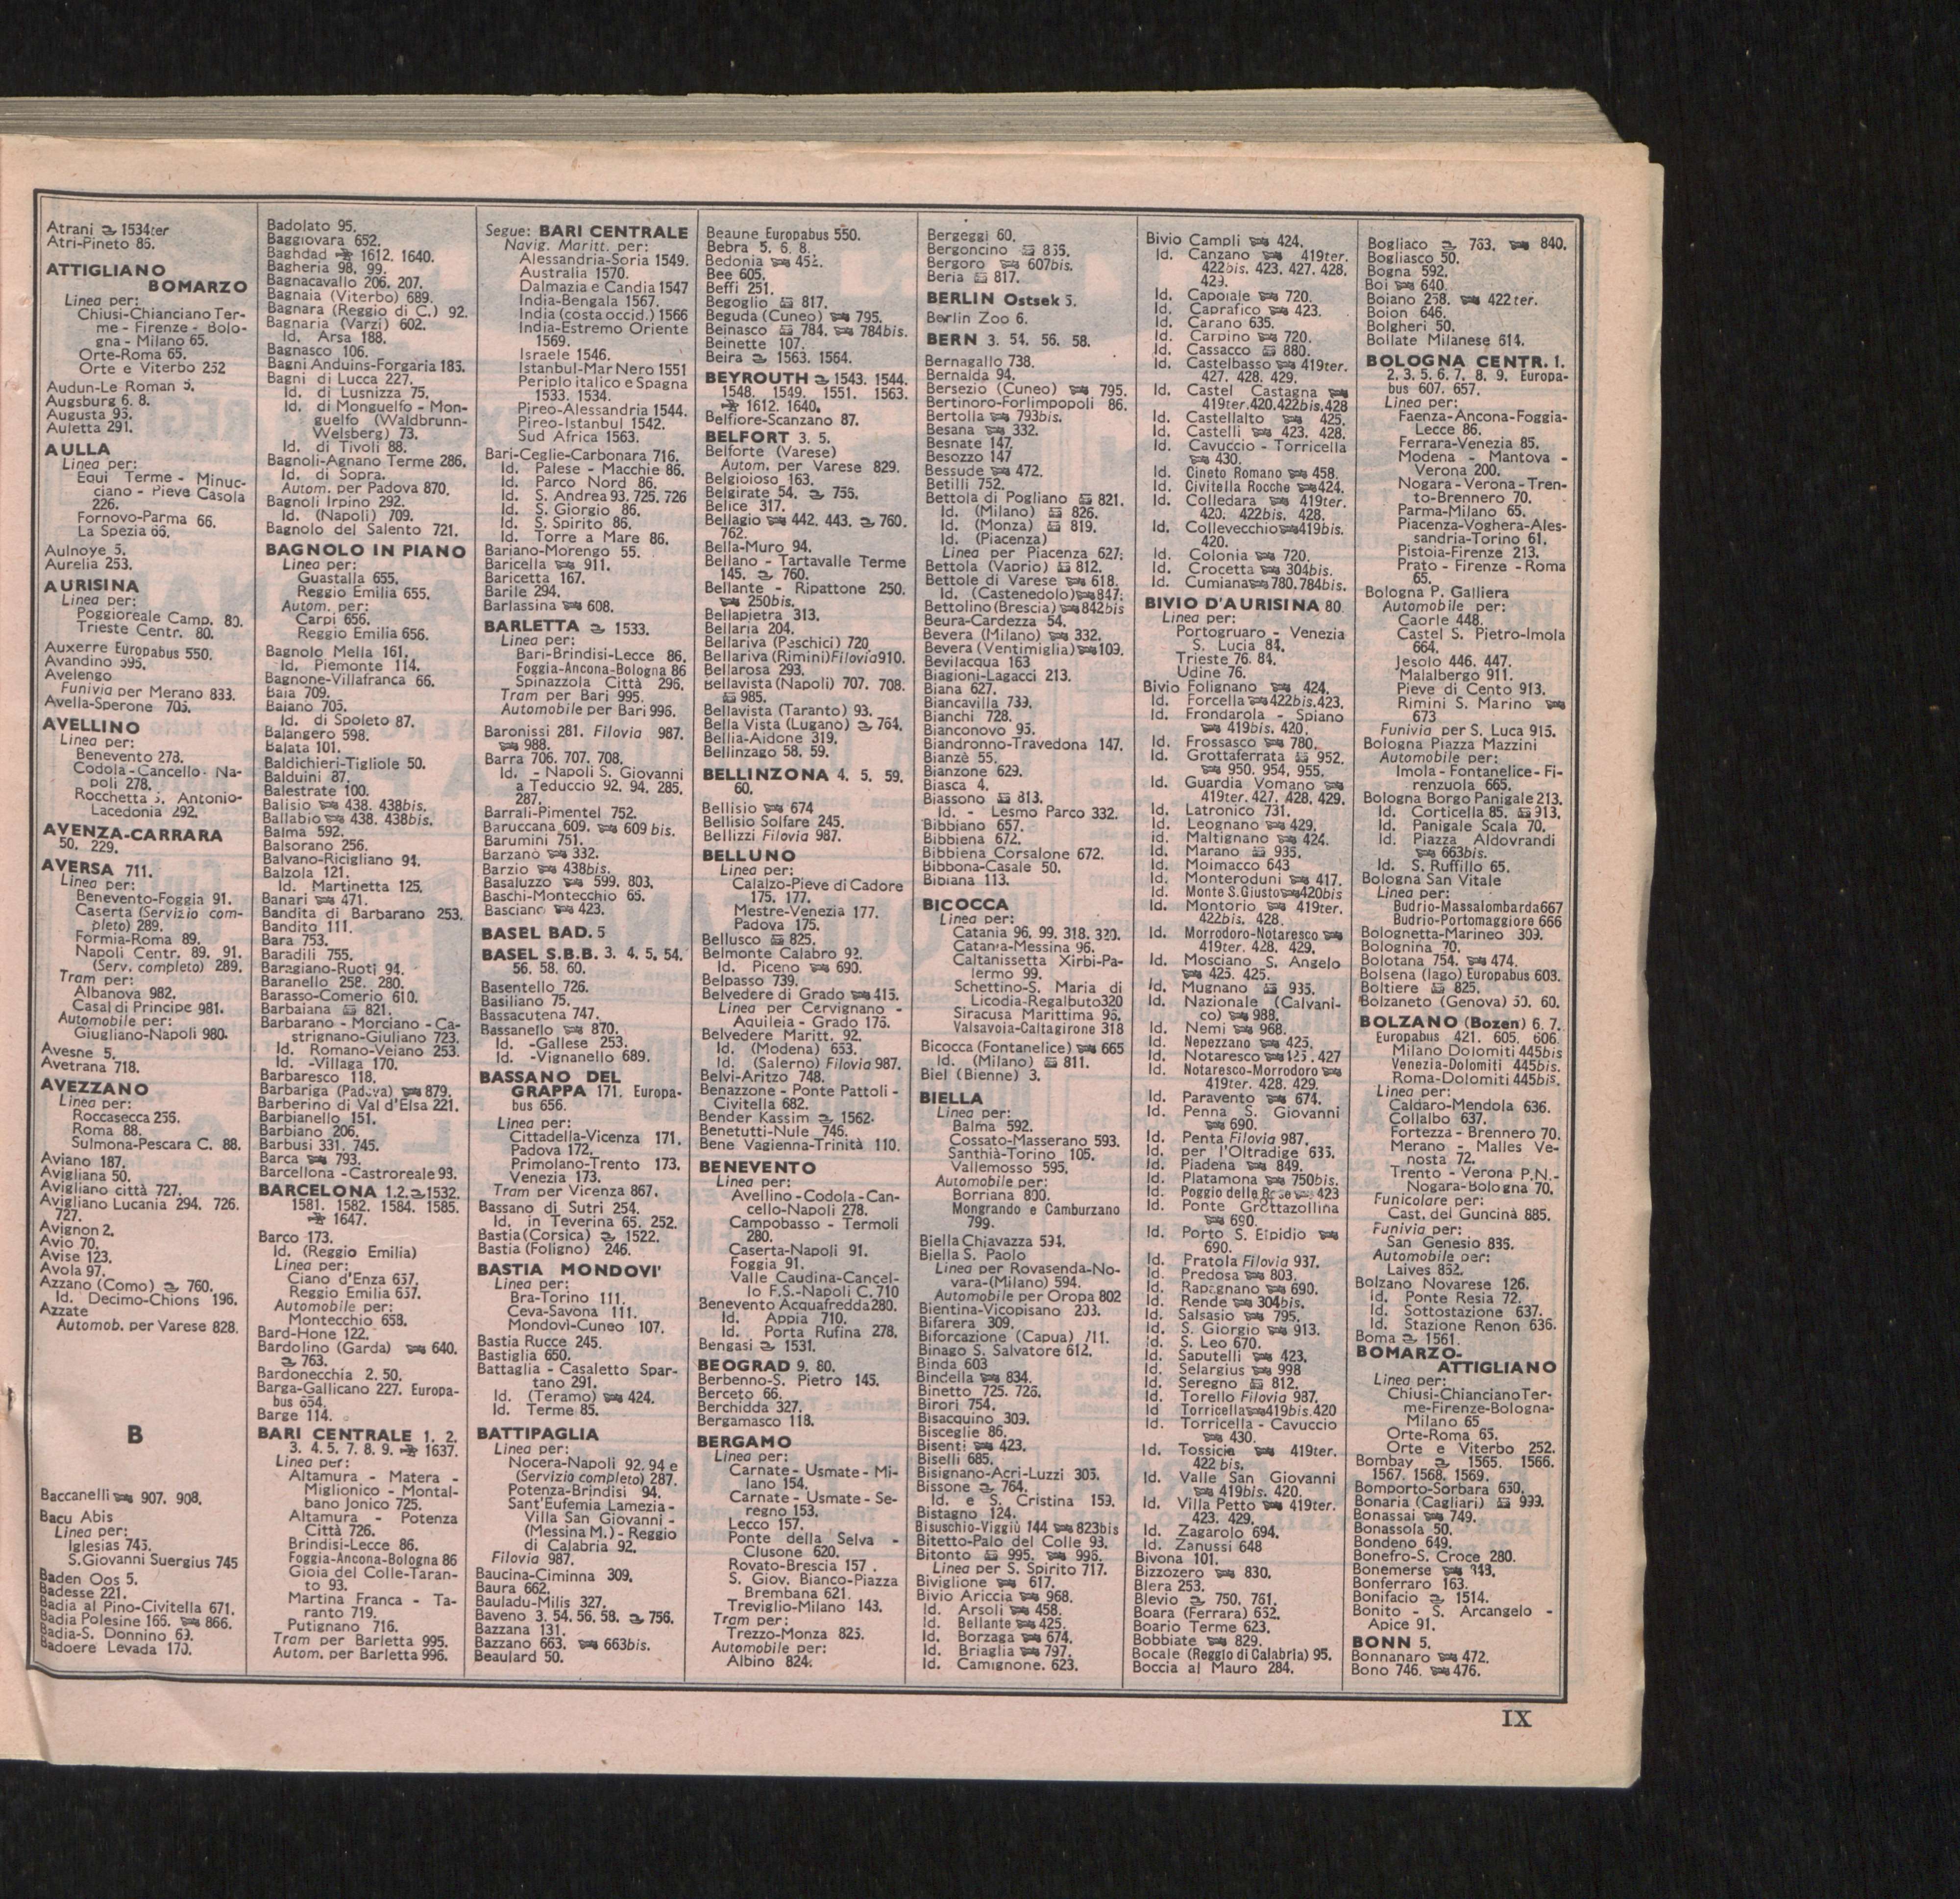 Atrani 1534ter
Atri-Pineto 86.
ATTIGLIANO
BOMARZO
Linea per:
Chiusi-Chianciano Ter-
me - Firenze - Bolo-
gna - Milano 65.
Orte-Roma 65.
Orte e Viterbo 252
Audun-Le Roman 5.
Augsburg 6. 8.
Augusta 93.
Auletta 291.
AULLA
Linea per:
Equi Terme - Minuc-
ciano - Pieve Casola
226.
Fornovo-Parma 66.
La Spezia 66.
Aulnoye 5.
Aurelia 253.
AURISINA
Linea per:
Poggioreale Camp. 80.
Trieste Centr. 80.
Auxerre Europabus 550.
Avandino 595.
Avelengo
Funivia per Merano 833.
Avella-Sperone 705.
AVELLINO
Linea per:
Benevento 278.
Codola-Cancello-Na-
poli 278.
Rocchetta S. Antonio-
Lacedonia 292.
AVENZA-CARRARA
50. 229.
AVERSA 711.
Linea per:
Benevento-Foggia 91.
Caserta (Servizio com-
pleto) 289.
Formia-Roma 89.
Napoli Centr. 89. 91.
(Serv. completo) 289.
Tram per:
Albanova 982.
Casal di Principe 981.
Automobile per:
Giugliano-Napoli 980.
Avesne 5.
Avetrana 718.
AVEZZANO
Linea per:
Roccasecca 256.
Roma 88.
Sulmona-Pescara C. 88.
Aviano 187.
Avigliana 50.
Avigliano città 727.
Avigliano Lucania 294. 726.
727.
Avignon 2.
Avio 70.
Avise 123.
Avola 97.
Azzano (Como) 760.
Id. Decimo-Chions 196.
Azzate
Automob. per Varese 828.
B
Baccanelli 907. 908.
Bacu Abis
Linea per:
Iglesias 745.
S.Giovanni Suergius 745
Baden Oos 5.
Badesse 221.
Badia al Pino-Civitella 671.
Badia Polesine 165. 866.
Badia-S. Donnino 63.
Badoere Levada 170.
Badolato 95.
Baggiovara 652.
Baghdad 1612. 1640.
Bagheria 98. 99.
Bagnacavallo 206. 207.
Bagnaia (Viterbo) 689.
Bagnara (Reggio di C.) 92.
Bagnaria (Varzi) 602.
Id. Arsa 188.
Bagnasco 106.
Bagni Anduins-Forgaria 183.
Bagni di Lucca 227.
Id. di Lusnizza 75.
Id. di Monguelfo - Mon-
guelfo (Waldbrunn-
Welsberg) 73.
Id. di Tivoli 88.
Bagnoli-Agnano Terme 286.
Id. di Sopra.
Autom. per Padova 870.
Bagnoli Irpino 292.
Id. (Napoli) 709.
Bagnolo del Salento 721.
BAGNOLO IN PIANO
Linea per:
Guastalla 655.
Reggio Emilia 655.
Autom. per:
Carpi 656.
Reggio Emilia 656.
Bagnolo Mella 161.
Id. Piemonte 114.
Bagnone-Villafranca 66.
Baia 709.
Baiano 705.
Id. di Spoleto 87.
Balangero 598.
Balata 101.
Baldichieri-Tigliole 50.
Balduini 87.
Balestrate 100.
Balisio 438. 438bis.
Ballabio 438. 438bis.
Balma 592.
Balsorano 256.
Balvano-Ricigliano 94.
Balzola 121.
Id. Martinetta 125.
Banari 471.
Bandita di Barbarano 253.
Bandito 111.
Bara 753.
Baradili 755.
Baragiano-Ruoti 94.
Baranello 258. 280.
Barasso-Comerio 610.
Barbaiana 821.
Barbarano - Morciano - Ca-
strignano-Giuliano 723.
Id. Romano-Veiano 253.
Id. -Villaga 170.
Barbaresco 118.
Barbariga (Padova) 879.
Barberino di Val d'Elsa 221.
Barbianello 151.
Barbiano 206.
Barbusi 331. 745.
Barca 793.
Barcellona -Castroreale 93.
BARCELONA 1.2. 1532.
1581. 1582. 1584. 1585.
1647.
Barco 173.
Id. (Reggio Emilia)
Linea per:
Ciano d'Enza 657.
Reggio Emilia 657.
Automobile per:
Montecchio 658.
Bard-Hone 122.
Bardolino (Garda) 640.
763.
Bardonecchia 2. 50.
Barga-Gallicano 227. Europa-
bus 654.
Barge 114.
BARI CENTRALE 1. 2.
3. 4. 5. 7. 8. 9. 1637.
Linea per:
Altamura - Matera -
Miglionico - Montal-
bano Jonico 725.
Altamura - Potenza
Città 726.
Brindisi-Lecce 86.
Foggia-Ancona-Bologna 86
Gioia del Colle-Taran-
to 93.
Martina Franca - Ta-
ranto 719.
Putignano 716.
Tram per Barletta 995.
Autom. per Barletta 996.
Segue: BARI CENTRALE
Navig. Maritt. per:
Alessandria-Soria 1549.
Australia 1570.
Dalmazia e Candia 1547
India-Bengala 1567.
India (costa occid.) 1566
India-Estremo Oriente
1569.
Israele 1546.
Istanbul-Mar Nero 1551
Periplo italico e Spagna
1533. 1534.
Pireo-Alessandria 1544.
Pireo-Istanbul 1542.
Sud Africa 1563.
Bari-Ceglie-Carbonara 716.
Id. Palese - Macchie 86.
Id. Parco Nord 86.
Id. S. Andrea 93. 725. 726
Id. S. Giorgio 86.
Id. S. Spirito 86.
Id. Torre a Mare 86.
Bariano-Morengo 55.
Baricella 911.
Baricetta 167.
Barile 294.
Barlassina 608.
BARLETTA 1533.
Linea per:
Bari-Brindisi-Lecce 86.
Foggia-Ancona-Bologna 86
Spinazzola Città 296.
Tram per Bari 995.
Automobile per Bari 996.
Baronissi 281. Filovia 987.
988.
Barra 706. 707. 708.
Id. - Napoli S. Giovanni
a Teduccio 92. 94. 285.
287.
Barrali-Pimentel 752.
Baruccana 609. 609 bis.
Barumini 751.
Barzanò 332.
Barzio 438bis.
Basaluzzo 599. 803.
Baschi-Montecchio 65.
Basciano 423.
BASEL BAD. 5
BASEL S.B.B. 3. 4. 5. 54.
56. 58. 60.
Basentello 726.
Basiliano 75.
Bassacutena 747.
Bassanello 870.
Id. -Gallese 253.
Id. -Vignanello 689.
BASSANO DEL
GRAPPA 171. Europa-
bus 656.
Linea per:
Cittadella-Vicenza 171.
Padova 172.
Primolano-Trento 173.
Venezia 173.
Tram per Vicenza 867.
Bassano di Sutri 254.
Id. in Teverina 65. 252.
Bastia (Corsica) 1522.
Bastia (Foligno) 246.
BASTIA MONDOVI'
Linea per:
Bra-Torino 111.
Ceva-Savona 111.
Mondovì-Cuneo 107.
Bastia Rucce 245.
Bastiglia 650.
Battaglia - Casaletto Spar-
tano 291.
Id. (Teramo) 424.
Id. Terme 85.
BATTIPAGLIA
Linea per:
Nocera-Napoli 92. 94 e
(Servizio completo) 287.
Potenza-Brindisi 94.
Sant'Eufemia Lamezia -
Villa San Giovanni -
(Messina M.) - Reggio
di Calabria 92.
Filovia 987.
Baucina-Ciminna 309.
Baura 662.
Bauladu-Milis 327.
Baveno 3. 54. 56. 58. 756.
Bazzana 131.
Bazzano 663. 663bis.
Beaulard 50.
Beaune Europabus 550.
Bebra 5. 6. 8.
Bedonia 452.
Bee 605.
Beffi 251.
Begoglio 817.
Beguda (Cuneo) 795.
Beinasco 784. 784bis.
Beinette 107.
Beira 1563. 1564.
BEYROUTH 1543. 1544.
1548. 1549. 1551. 1563.
1612. 1640.
Belfiore-Scanzano 87.
BELFORT 3. 5.
Belforte (Varese)
Autom. per Varese 829.
Belgioioso 163.
Belgirate 54. 756.
Belice 317.
Bellagio 442. 443. 760.
762.
Bella-Muro 94.
Bellano - Tartavalle Terme
145. 760.
Bellante - Ripattone 250.
250bis.
Bellapietra 313.
Bellaria 204.
Bellariva (Peschici) 720
Bellariva (Rimini)Filovia910.
Bellarosa 293.
Bellavista (Napoli) 707. 708.
985.
Bellavista (Taranto) 93.
Bella Vista (Lugano) 764.
Bellia-Aidone 319.
Bellinzago 58. 59.
BELLINZONA 4. 5. 59.
60.
Bellisio 674
Bellisio Solfare 245.
Bellizzi Filovia 987.
BELLUNO
Linea per:
Calalzo-Pieve di Cadore
175. 177.
Mestre-Venezia 177.
Padova 175.
Bellusco 825.
Belmonte Calabro 92.
Id. Piceno 690.
Belpasso 739.
Belvedere di Grado 415.
Linea per Cervignano -
Aquileia - Grado 176.
Belvedere Maritt. 92.
Id. (Modena) 653.
Id. (Salerno) Filovia 987.
Belvì-Aritzo 748.
Benazzone - Ponte Pattoli -
Civitella 682.
Bender Kassim 1562.
Benetutti-Nule 746.
Bene Vagienna-Trinità 110.
BENEVENTO
Linea per:
Avellino-Codola-Can-
cello-Napoli 278.
Campobasso - Termoli
280.
Caserta-Napoli 91.
Foggia 91.
Valle Caudina-Cancel-
lo F.S.-Napoli C. 710
Benevento Acquafredda280.
Id. Appia 710.
Id. Porta Rufina 278.
Bengasi 1531.
BEOGRAD 9. 80.
Berbenno-S. Pietro 145.
Berceto 66.
Berchidda 327.
Bergamasco 118.
BERGAMO
Linea per:
Carnate - Usmate - Mi-
lano 154.
Carnate - Usmate - Se-
regno 153.
Lecco 157.
Ponte della Selva -
Clusone 620.
Rovato-Brescia 157 .
S. Giov. Bianco-Piazza
Brembana 621.
Treviglio-Milano 143.
Tram per:
Trezzo-Monza 825.
Automobile per:
Albino 824.
Bergeggi 60.
Bergoncino 855.
Bergoro 607bis.
Beria 817.
BERLIN Ostsek 5.
Berlin Zoo 6.
BERN 3. 54. 56. 58.
Bernagallo 738.
Bernalda 94.
Bersezio (Cuneo) 795.
Bertinoro-Forlimpopoli 86.
Bertolla 793bis.
Besana 332.
Besnate 147.
Besozzo 147
Bessude 472.
Betilli 752.
Bettola di Pogliano 821.
Id. (Milano) 826.
Id. (Monza) 819.
Id. (Piacenza)
Linea per Piacenza 627.
Bettola (Vaprio) 812.
Bettole di Varese 618.
Id. (Castenedolo) 847.
Bettolino (Brescia) 842bis
Beura-Cardezza 54.
Bevera (Milano) 332.
Bevera (Ventimiglia) 109.
Bevilacqua 163
Biagioni-Lagacci 213.
Biana 627.
Biancavilla 739.
Bianchi 728.
Bianconovo 95.
Biandronno-Travedona 147.
Bianzè 55.
Bianzone 629.
Biasca 4.
Biassono 813.
Id. - Lesmo Parco 332.
Bibbiano 657.
Bibbiena 672.
Bibbiena Corsalone 672.
Bibbona-Casale 50.
Bibiana 113.
BICOCCA
Linea per:
Catania 96. 99. 318. 320.
Catania-Messina 96.
Caltanissetta Xirbi-Pa-
lermo 99.
Schettino-S. Maria di
Licodia-Regalbuto320
Siracusa Marittima 96.
Valsavoia-Caltagirone 318
Bicocca (Fontanelice) 665
Id. (Milano) 811.
Biel (Bienne) 3.
BIELLA
Linea per:
Balma 592.
Cossato-Masserano 593.
Santhià-Torino 105.
Vallemosso 595.
Automobile per:
Borriana 800.
Mongrando e Camburzano
799.
Biella Chiavazza 594.
Biella S. Paolo
Linea per Rovasenda-No-
vara-(Milano) 594.
Automobile per Oropa 802
Bientina-Vicopisano 203.
Bifarera 309.
Biforcazione (Capua) 711.
Binago S. Salvatore 612.
Binda 603
Bindella 834.
Binetto 725. 726.
Birori 754.
Bisacquino 309.
Bisceglie 86.
Bisenti 423.
Biselli 685.
Bisignano-Acri-Luzzi 305.
Bissone 764.
Id. e S. Cristina 159.
Bistagno 124.
Bisuschio-Viggiù 144 823bis
Bitetto-Palo del Colle 93.
Bitonto 995. 996.
Linea per S. Spirito 717.
Biviglione 617.
Bivio Ariccia 968.
Id. Arsoli 458.
Id. Bellante 425.
Id. Borzaga 674.
Id. Briaglia 797.
Id. Camignone. 623.
Bivio Campli 424.
Id. Canzano 419ter.
422bis. 423. 427. 428.
429.
Id. Capoiale 720.
Id. Caprafico 423.
Id. Carano 635.
Id. Carpino 720.
Id. Cassacco 880.
Id. Castelbasso 419ter.
427. 428. 429.
Id. Castel Castagna
419ter.420.422bis.428
Id. Castellalto 425.
Id. Castelli 423. 428.
Id. Cavuccio - Torricella
430.
Id. Cineto Romano 458.
Id. Civitella Rocche 424.
Id. Colledara 419ter.
420. 422bis. 428.
Id. Collevecchio 419bis.
420.
Id. Colonia 720.
Id. Crocetta 304bis.
Id. Cumiana 780.784bis.
BIVIO D'AURISINA 80.
Linea per:
Portogruaro - Venezia
S. Lucia 84.
Trieste 76. 84.
Udine 76.
Bivio Folignano 424.
Id. Forcella 422bis.423.
Id. Frondarola - Spiano
419bis. 420.
Id. Frossasco 780.
Id. Grottaferrata 952.
950. 954. 955.
Id. Guardia Vomano
419ter. 427. 428. 429.
Id. Latronico 731.
Id. Leognano 429.
id. Maltignano 424.
Id. Marano 935.
Id. Moimacco 643
Id. Monteroduni 417.
Id. Monte S.Giusto 420bis
Id. Montorio 419ter.
422bis. 428.
Id. Morrodoro-Notaresco
419ter. 428. 429.
Id. Mosciano S. Angelo
425. 425.
Id. Mugnano 935.
Id. Nazionale (Calvani-
co) 988.
Id. Nemi 968.
Id. Nepezzano 425.
Id. Notaresco 425. 427
Id. Notaresco-Morrodoro
419ter. 428. 429.
Id. Paravento 674.
Id. Penna S. Giovanni
690.
Id. Penta Filovia 987.
Id. per l'Oltradige 635.
Id. Piadena 849.
Id. Platamona 750bis.
Id. Poggio delle Rose 423
Id. Ponte Grottazollina
690.
Id. Porto S. Elpidio
690.
Id. Pratola Filovia 937.
Id. Predosa 803.
Id. Rapagnano 690.
Id. Rende 304bis.
Id. Salsasio 795.
Id. S. Giorgio 913.
Id. S. Leo 670.
Id. Saputelli 423.
Id. Selargius 998
Id. Seregno 812.
Id. Torello Filovia 987.
Id Torricella 419bis.420
Id. Torricella - Cavuccio
430.
Id. Tossicia 419ter.
422 bis.
Id. Valle San Giovanni
419bis. 420.
Id. Villa Petto 419ter.
423. 429.
Id. Zagarolo 694.
Id. Zanussi 648
Bivona 101.
Bizzozero 830.
Blera 253.
Blevio 750. 761.
Boara (Ferrara) 652.
Boario Terme 623.
Bobbiate 829.
Bocale (Reggio di Calabria) 95.
Boccia al Mauro 284.
Bogliaco 763. 840.
Bogliasco 50.
Bogna 592.
Boi 640.
Boiano 258. 422ter.
Boion 646.
Bolgheri 50.
Bollate Milanese 614.
BOLOGNA CENTR. 1.
2. 3. 5. 6. 7. 8. 9. Europa-
bus 607. 657.
Linea per:
Faenza-Ancona-Foggia-
Lecce 86.
Ferrara-Venezia 85.
Modena - Mantova -
Verona 200.
Nogara - Verona - Tren-
to-Brennero 70.
Parma-Milano 65.
Piacenza-Voghera-Ales-
sandria-Torino 61.
Pistoia-Firenze 213.
Prato - Firenze - Roma
65.
Bologna P. Galliera
Automobile per:
Caorle 448.
Castel S. Pietro-Imola
664.
Jesolo 446. 447.
Malalbergo 911.
Pieve di Cento 913.
Rimini S. Marino
673
Funivia per S. Luca 915.
Bologna Piazza Mazzini
Automobile per:
Imola - Fontanelice - Fi-
renzuola 665.
Bologna Borgo Panigale 213.
Id. Corticella 85. 913.
Id. Panigale Scala 70.
Id. Piazza Aldovrandi
663bis.
Id. S. Ruffillo 65.
Bologna San Vitale
Linea per:
Budrio-Massalombarda667
Budrio-Portomaggiore 666
Bolognetta-Marineo 309.
Bolognina 70.
Bolotana 754. 474.
Bolsena (lago) Europabus 603.
Boltiere 825.
Bolzaneto (Genova) 50. 60.
BOLZANO (Bozen) 6. 7.
Europabus 421. 605. 606.
Milano Dolomiti 445bis
Venezia-Dolomiti 445bis.
Roma-Dolomiti 445bis.
Linea per:
Caldaro-Mendola 636.
Collalbo 637.
Fortezza - Brennero 70.
Merano - Malles Ve-
nosta 72.
Trento - Verona P.N.-
Nogara-Bologna 70.
Funicolare per:
Cast. del Guncinà 885.
Funivia per:
San Genesio 835.
Automobile per:
Laives 852.
Bolzano Novarese 126.
Id. Ponte Resia 72.
Id. Sottostazione 637.
Id. Stazione Renon 636.
Boma 1561.
BOMARZO-
ATTIGLIANO
Linea per:
Chiusi-ChiancianoTer-
me-Firenze-Bologna-
Milano 65
Orte-Roma 65.
Orte e Viterbo 252.
Bombay 1565. 1566.
1567. 1568. 1569.
Bomporto-Sorbara 650.
Bonaria (Cagliari) 999.
Bonassai 749.
Bonassola 50.
Bondeno 649.
Bonefro-S. Croce 280.
Bonemerse 848.
Bonferraro 163.
Bonifacio 1514.
Bonito - S. Arcangelo -
Apice 91.
BONN 5.
Bonnanaro 472.
Bono 746. 476.
IX